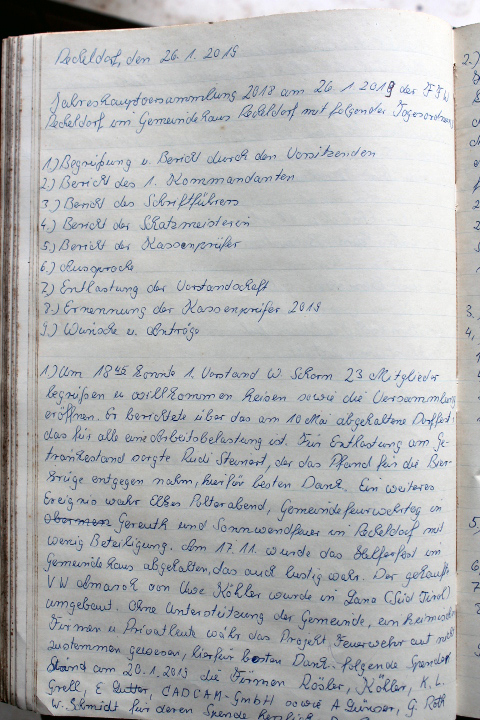 Peckeldorf, den 26.1.2019
Jahreshauptversammlung 2018 am 26.1.2019 der FFW
Peckeldorf im Gemeindehaus Peckeldorf mit folgender Tagesordnung
1.) Begrüßung u. Bericht durch den Vorsitzenden
2.) Bericht des 1. Kommandanten
3.) Bericht des Schriftführers
4.) Bericht der Schatzmeisterin
5.) Bericht der Kassenprüfer
6.) Aussprache
7.) Entlastung der Vorstandschaft
8.) Ernennung der Kassenprüfer 2019
9.) Wünsche u. Anträge
1.) Um 18 45 konnte 1. Vorstand W. Schorn 23 Mitglieder
begrüßen u. willkommen heisen sowie die Versammlung
eröffnen. Er berichtete über das am 10 Mai abgehaltene Dorffest
das für alle eine Arbeitsbelastung ist. Für Entlastung am Ge-
tränkestand sorgte Rudi Steinert, der das Pfand für die Bier-
krüge entgegen nahm, hierfür besten Dank. Ein weiteres
Ereignis wahr Polterabend, Gemeindefeuerwehrtag in
Gereuth und Sonnwendfeuer in Peckeldorf mit
wenig Beteiligung. Am 17.11. wurde das Helferfest im
Gemeindehaus abgehalten, das auch lustig wahr. Der gekaufte
VW Amarok von Uwe Köhler wurde in Lana (Süd Tirol)
umgebaut. Ohne Unterstützung der Gemeinde, ein heimischer
Firmen u. Privatleute währ das Projekt Feuerwehrauto nicht
zustemmen gewesen, hierfür besten Dank. folgende Spender
am 20.1.2019 die Firmen Rösler, Köhler, K. L.
Grell, E. Sutter, CADCAM-GmbH sowie A. G. Roth
W. Schmidt für deren Spende